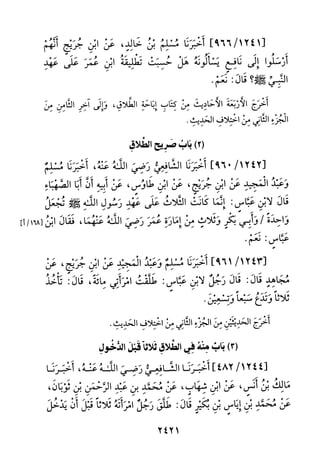 [٩٦٦/١٢٤١] أَخْبَرَنَا مُسْلِمُ بْنُ خَالِدٍ، عَنْ ابْنِ جُرَيْجٍ أَنَّهُمْ
أَرْسَلُوا إِلَى نَافِعٍ يَسْأَلُونَهُ هَلْ حُسِبَتْ تَطْلِيقَةُ ابْنِ عُمَرَ عَلَى عَهْدِ
النَّبِيِّ ﷺ؟ قَالَ: نَعَمْ.
أَخْرَجَ الْأَرْبَعَةَ الْأَحَادِيثَ مِنْ كِتَابِ إِبَاحَةِ الطَّلَاقِ، وَإِلَى آخِرِ الثَّامِنِ مِنَ
الْجُزْءِ الثَّانِي مِنْ اخْتِلَافِ الْحَدِيثِ.
(٢) بَابُ صَرِيحِ الطَّلَاقِ
[٩٦٠/١٢٤٢] أَخْبَرَنَا الشَّافِعِيُّ رَضِيَ اللَّهُ عَنْهُ، أَخْبَرَنَا مُسْلِمٌ
وَعَبْدُ الْمَجِيدِ عَنْ ابْنِ جُرَيْجٍ، عَنْ ابْنِ طَاوُسٍ، عَنْ أَبِيهِ أَنَّ أَبَا الصَّهْبَاءِ
قَالَ لِابْنِ عَبَّاسٍ: إِنَّمَا كَانَتْ الثَّلَاثُ عَلَى عَهْدِ رَسُولِ اللَّهِ ﷺ تُجْعَلُ
وَاحِدَةً / وَأَبِي بَكْرٍ وَثَلَاثٍ مِنْ إِمَارَةِ عُمَرَ رَضِيَ اللَّهُ عَنْهُمَا، فَقَالَ ابْنُ [١٦٨/أ]
عَبَّاسٍ: نَعَمْ.
[٩٦١/١٢٤٣] أَخْبَرَنَا مُسْلِمٌ وَعَبْدُ الْمَجِيدِ عَنْ ابْنِ جُرَيْجٍ، عَنْ
مُجَاهِدٍ قَالَ: قَالَ رَجُلٌ لِابْنِ عَبَّاسٍ: طَلَّقْتُ امْرَأَتِي مِائَةً، قَالَ: تَأْخُذُ
ثَلَاثًا وَتَدَعُ سَبْعًا وَتِسْعِينَ.
أَخْرَجَ الْحَدِيثَيْنِ مِنَ الْجُزْءِ الثَّانِي مِنْ اخْتِلَافِ الْحَدِيثِ.
(٣) بَابٌ مِنْهُ فِي الطَّلَاقِ ثَلَاثًا قَبْلَ الدُّخُولِ
[٤٨٢/١٢٤٤] أَخْبَرَنَا الشَّافِعِيُّ رَضِيَ اللَّهُ عَنْهُ، أَخْبَرَنَا
مَالِكُ بْنُ أَنَسٍ، عَنْ ابْنِ شِهَابٍ، عَنْ مُحَمَّدِ بْنِ عَبْدِ الرَّحْمَنِ بْنِ ثَوْبَانَ،
عَنْ مُحَمَّدِ بْنِ إِيَاسِ بْنِ بُكَيْرٍ قَالَ: طَلَّقَ رَجُلٌ امْرَأَتَهُ ثَلَاثًا قَبْلَ أَنْ يَدْخُلَ
٢٤٢١